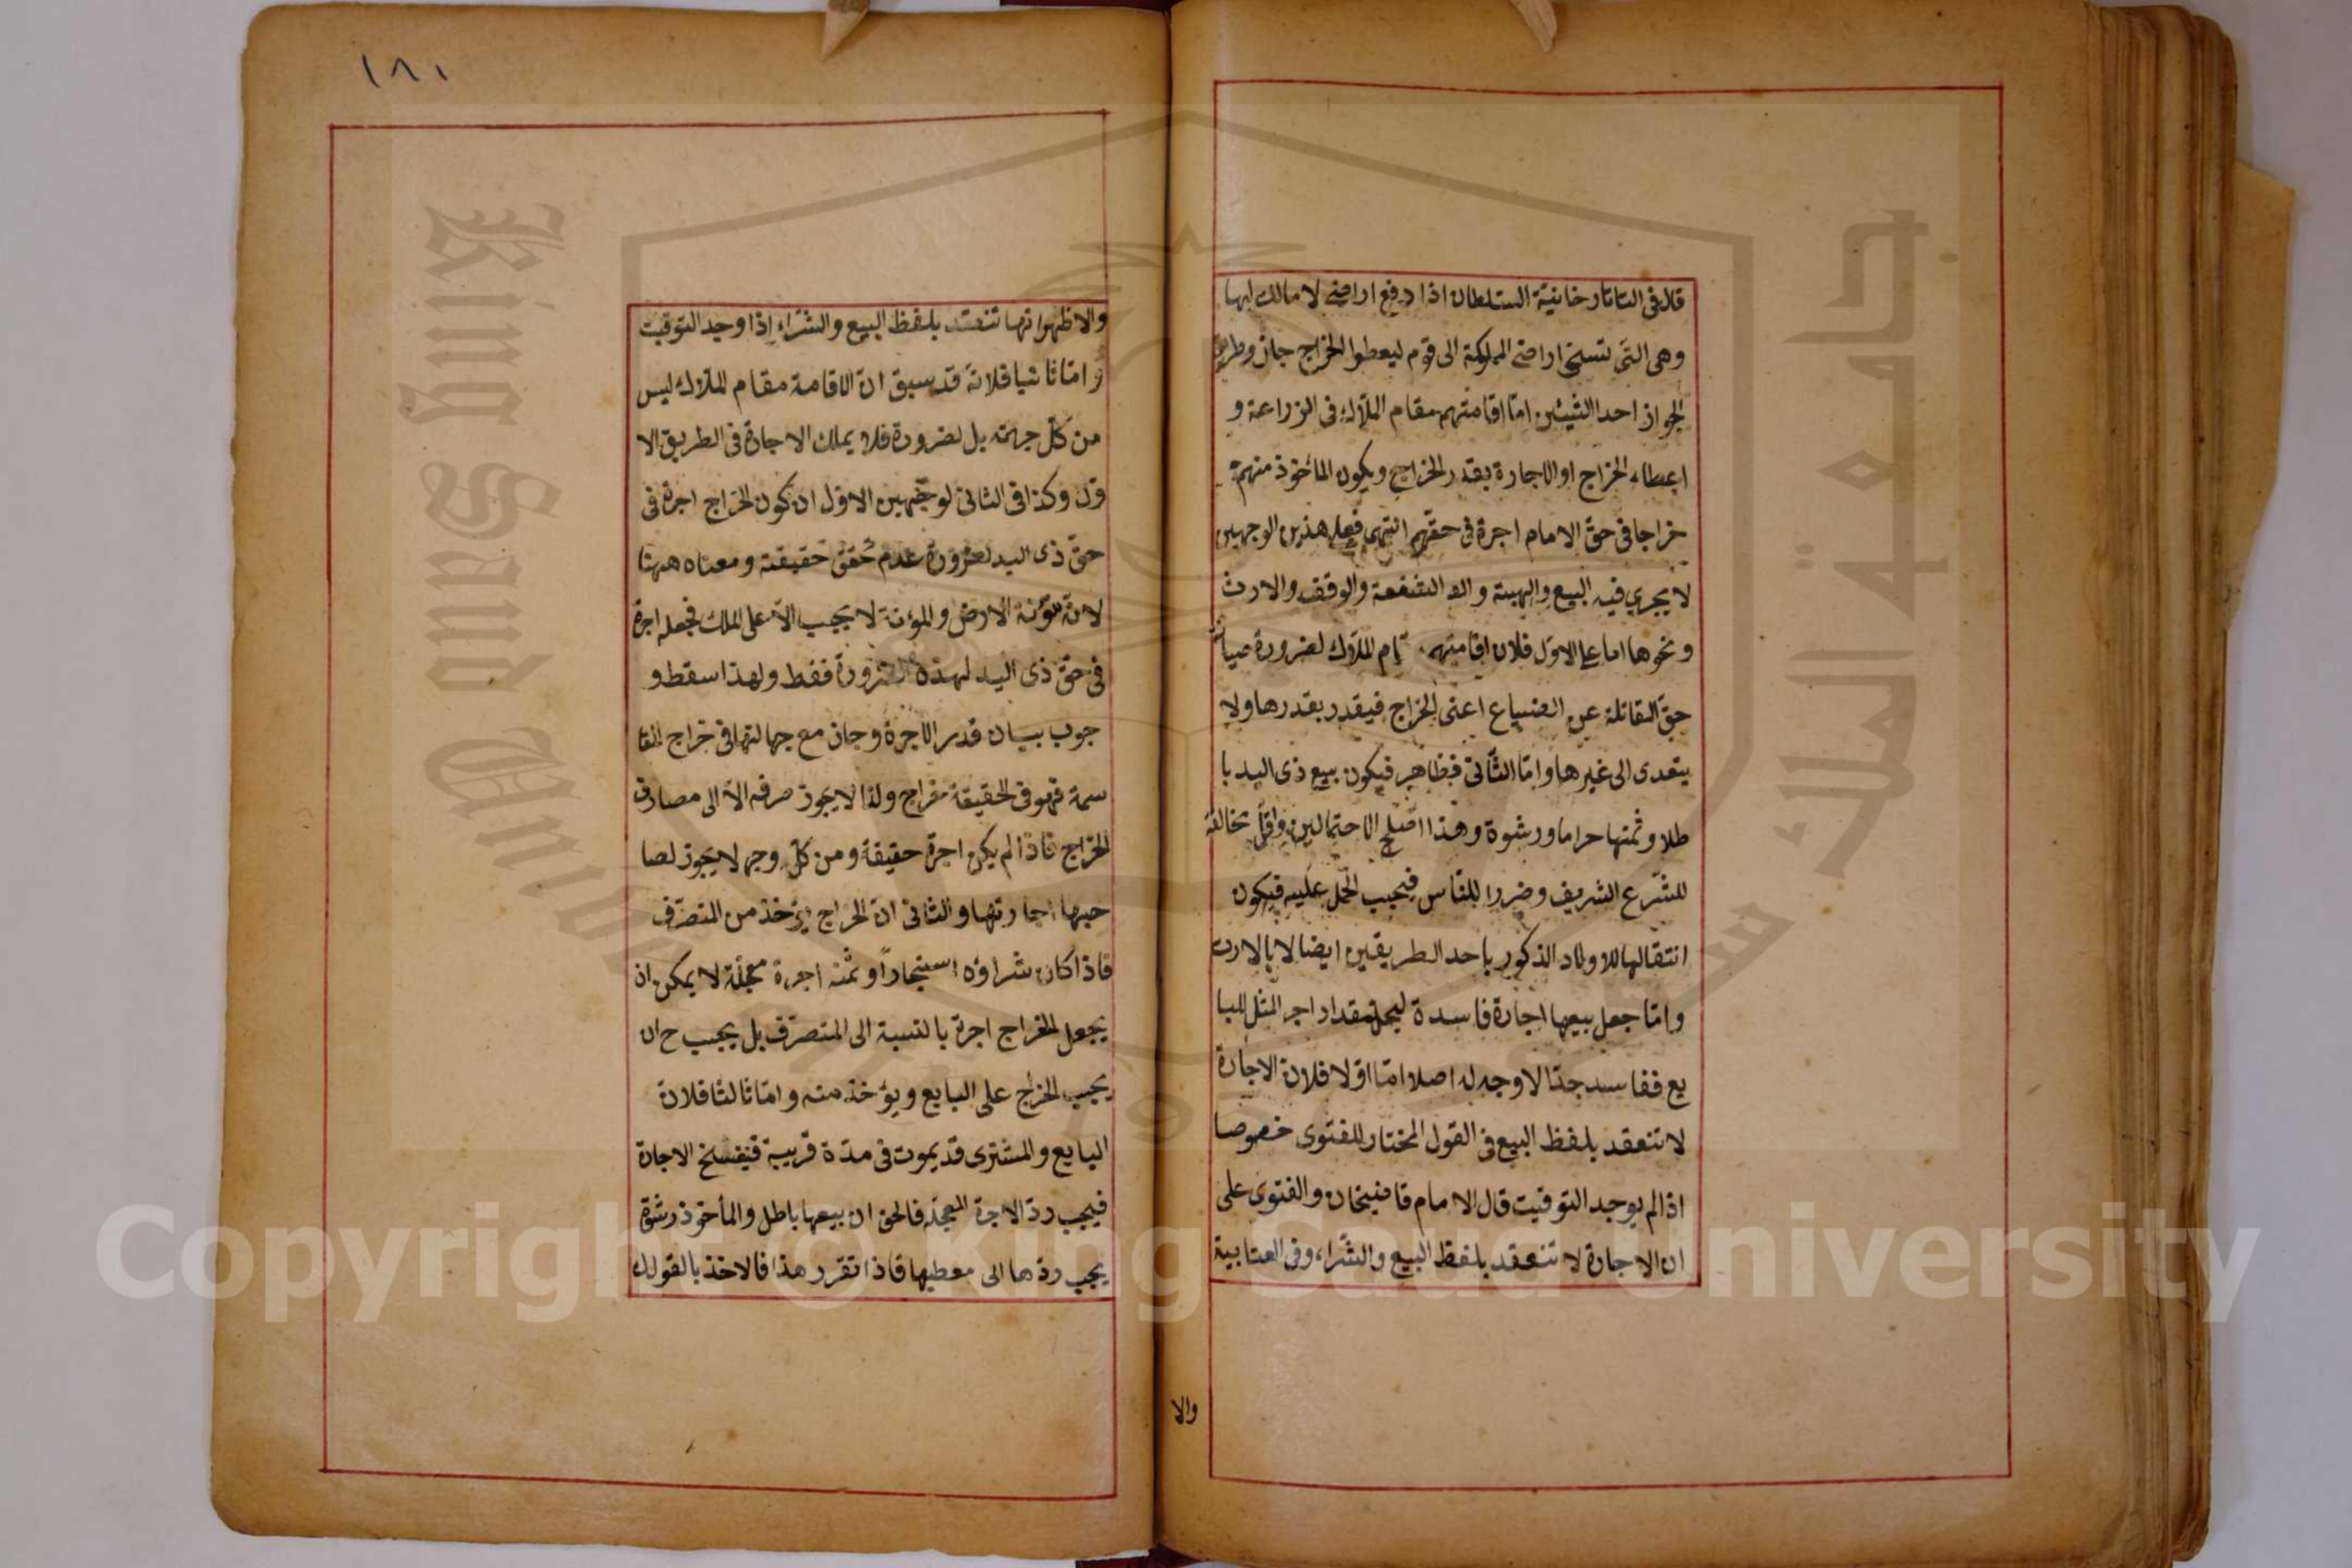 قال فى التاتارخانية السلطان اذا دفع اراضى لا مالك لها
وهى التى تسمى اراضى المملكة الى قوم ليعطوا الخراج جاز وطريق
الجواز احد الشيئين امّا اقامتهم مقام الملّاك فى الزراعة و
اعطاء الخراج او الاجارة بقدر الخراج ويكون المأخوذ منهم
خراجا فى حقّ الامام اجرة فى حقّهم انتهى فعلى هذين الوجهين
لا يجري فيه البيع والهبة والشفعة والوقف والارث
ونحوها اما على الاوّل فلان اقامتهم الملّاك لضرورة صيانة
حقّ المقاتلة عن الضياع اعنى الخراج فيقدر بقدرها ولا
يتعدى الى غيرها وامّا الثّانى فظاهر فيكون بيع ذى اليد با
طلا وثمنها حراما ورشوة وهذا اصلح الاحتمالين واقلّ مخالفة
للشّرع الشريف وضررا للنّاس فيجب الحمل عليه فيكون
انتقالها للاولاد الذكور باحد الطريقين ايضا لا بالارث
وامّا جعل بيعها اجارة فاسدة ليحلّ مقدار اجر المثل للبا
يع ففاسد جدّا لا وجه له اصلا امّا اوّلا فلان الاجارة
لا تنعقد بلفظ البيع فى القول المختار للفتوى خصوصا
اذا لم يوجد التوقيت قال الامام قاضيخان والفتوى على
ان الاجارة لا تنعقد بلفظ البيع والشّراء وفى العتابية
والا
١٨١
والاظهر انها تنعقد بلفظ البيع والشّراء اذا وجد التوقيت
وامّا ثانيا فلانّه قد سبق انّ الاقامة مقام الملّاك ليس
من كلّ جهة بل لضرورة فلا يملك الاجارة فى الطريق الا
ول وكذا فى الثانى لوجهين الاوّل ان كون الخراج اجرة فى
حقّ ذى اليد لضرورة عدم تحقّق حقيقته ومعناه ههنا
لانّه مؤنة الارض والمؤنة لا يجب الّا على الملك فجعله اجرة
فى حقّ ذى اليد لهذه الضرورة فقط ولهذا سقط و
جوب بيان قدر الاجرة وجاز مع جهالتها فى خراج المقا
سمة فهو فى الحقيقة خراج ولذا لا يجوز صرفه الّا الى مصارف
الخراج فاذا لم يكن اجرة حقيقة ومن كلّ وجه لا يجوز لصا
حبها اجارتها والثانى انّ الخراج يؤخذ من المتصرّف
فاذا كان شراؤه استيجاراً وثمنه اجرة معجّلة لا يمكن ان
يجعل الخراج اجرة بالنسبة الى المتصرّف بل يجب ح ان
يجب الخراج على البايع ويؤخذ منه وامّا ثالثا فلانّ
البايع والمشترى قد يموت فى مدّة قريبة فيفسخ الاجارة
فيجب ردّ الاجرة المعجّلة فالحق ان بيعها باطل والمأخوذ رشوة
يجب ردّها الى معطيها فاذا تقرر هذا فالاخذ بالقول
Copyright © King Saud University
King Saud University
جامعة الملك سعود